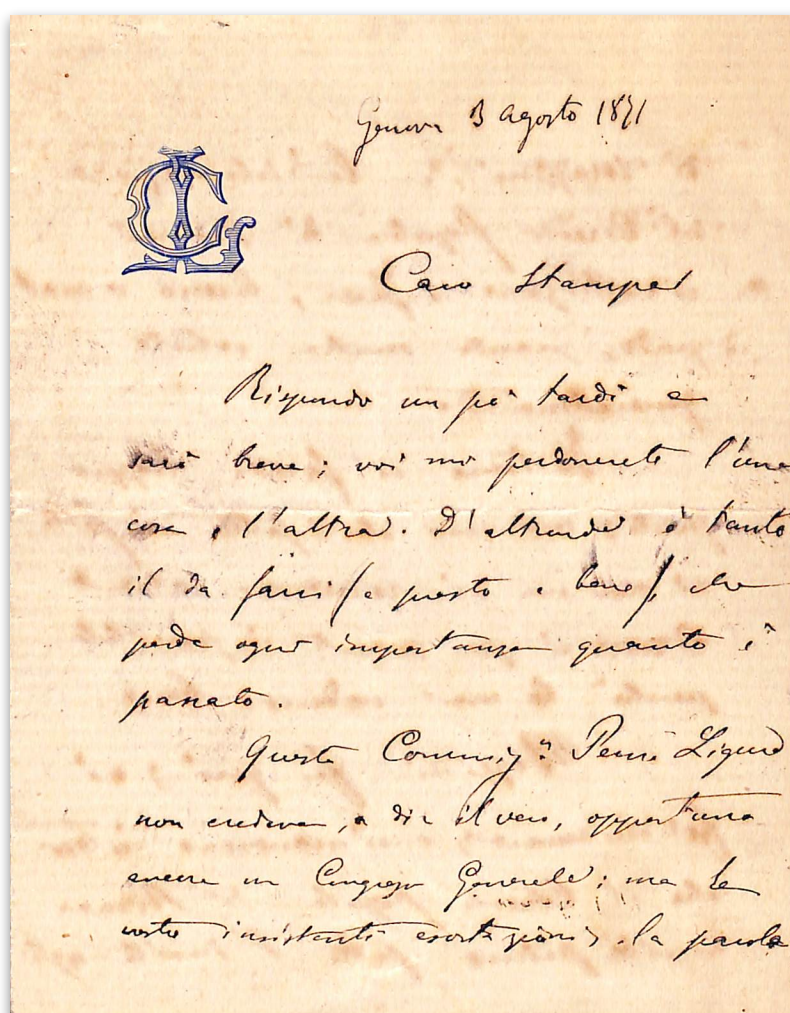 Genova 3 Agosto 1871
CL
Caro Stampa
Rispondo un pò tardi e
sarò breve; voi mi perdonerete l'una
cosa e l'altra. D'altronde è tanto
il da farsi (e presto e bene), che
perde ogni importanza quanto è
passato.
Questa Ligure
non credeva, a dir il vero, opportuno
ancora un Congresso Generale; ma le
vostre insistenti esortazioni, la parola